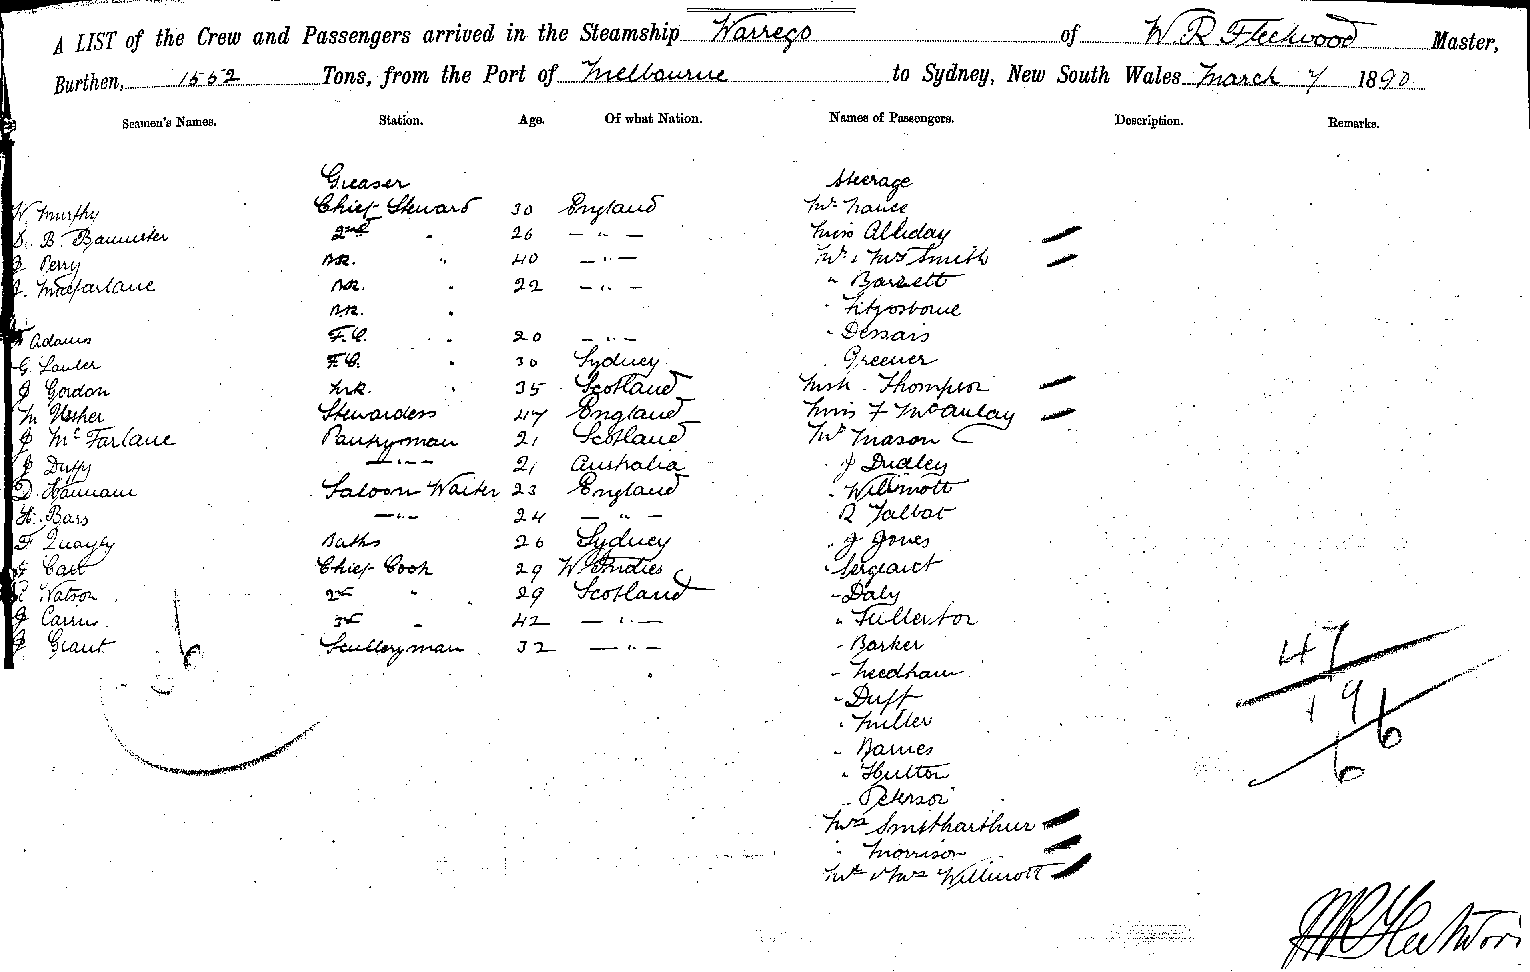 A LIST of the Crew and Passengers arrived in the Steamship Warrego of W R Fleetwood Master,
Burthen, 1552 Tons, from the Port of Melbourne to Sydney, New South Wales March 7 1890
Seamen's Names. Station. Age. Of what Nation. Names of Passengers. Description. Remarks.
Greaser Steerage
W Murphy Chief Steward 30 England Mr Nance
B. Bannister 2nd " 26 — " — Miss Alliday
J Perry " 40 — " — Mr & Mrs Smith
McFarlane " 22 — " — " Barrett
" " Fitzosborne
Adams F.C. " 20 — " — " Dessais
G Lawler F.C. " 30 Sydney Greener
J Gordon " 35 Scotland Thompson
M Usher Stewardess 47 England Miss F McAulay
J McFarlane Pantryman 21 Scotland Mr Mason
J Duffy — " — 21 Australia " J Dudley
D. Hannam Saloon Waiter 23 England " Willmott
H. Bars — " — 24 — " — R Talbot
F Quayly Baths 26 Sydney " J Jones
Carr Chief Cook 29 W. Indies " Sergeant
Watson 2nd " 29 Scotland " Daly
J Carrus 3rd " 42 — " — " Fullerton
J Grant Sculleryman 32 — " — " Barker
6
47
" Needham
" Duff
196
" Miller
" Barnes
6
" Hutton
" Peterson
Mrs Smitharthur
" Morrison
Mr & Mrs Willmott
WR Fleetwood